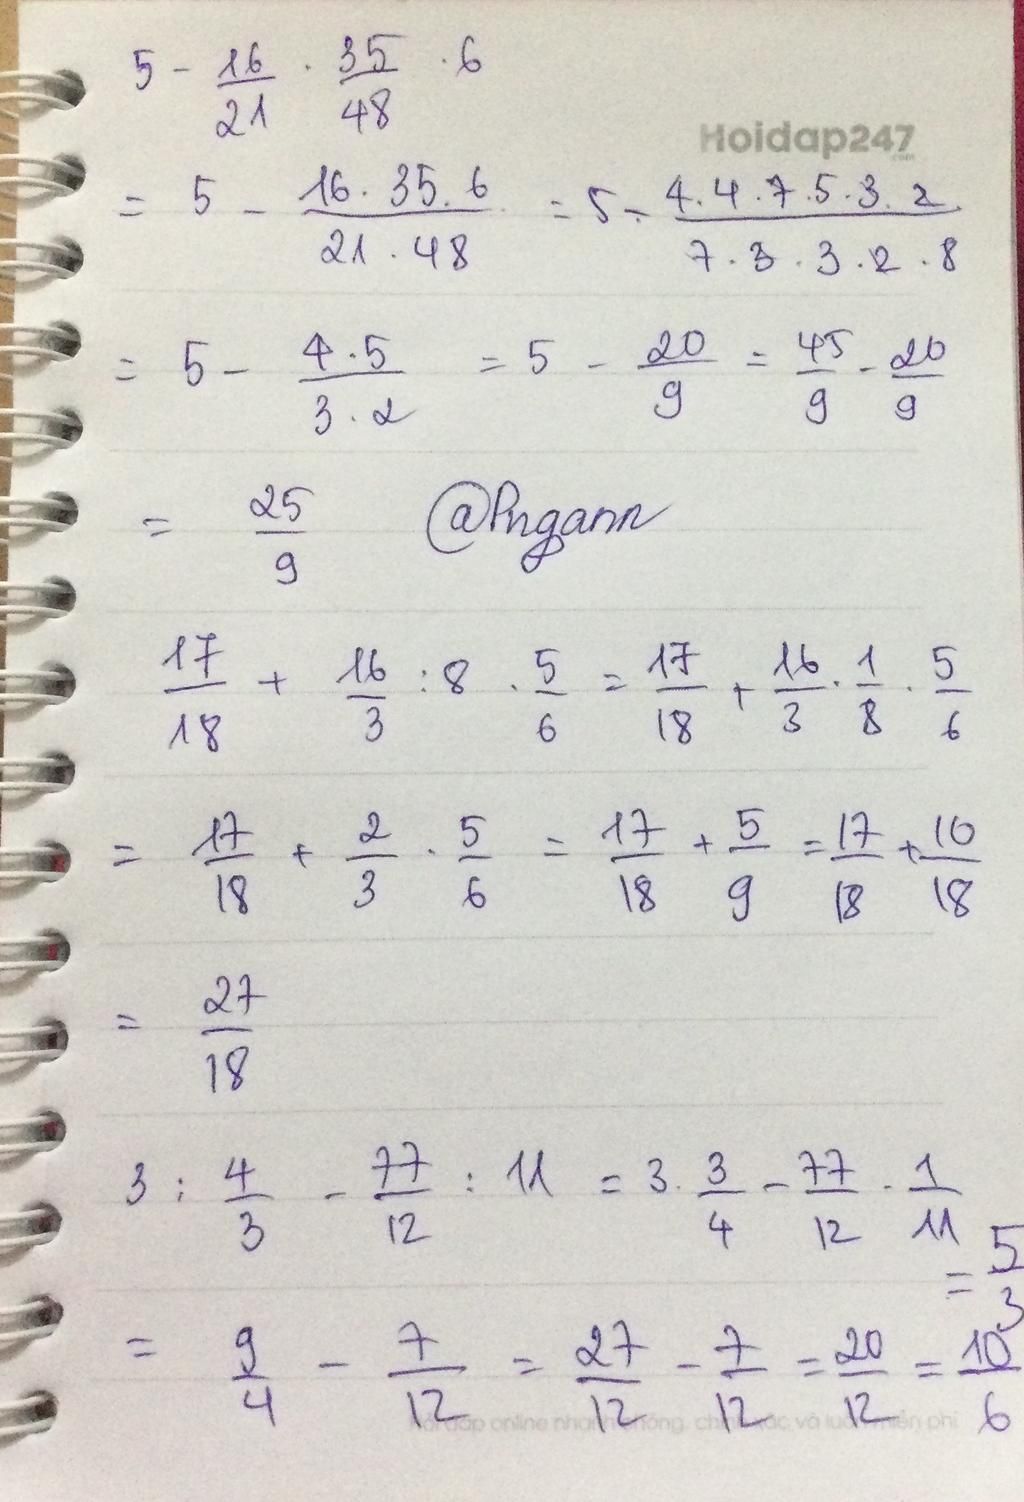 5 - 16/21 . 35/48 . 6
Hoidap247
.com
= 5 - 16.35.6/21.48 = 5 - 4.4.7.5.3.2/7.3.3.2.8
= 5 - 4.5/3.2 = 5 - 20/9 = 45/9 - 20/9
= 25/9 @Pngann
17/18 + 16/3 : 8 . 5/6 = 17/18 + 16/3 . 1/8 . 5/6
= 17/18 + 2/3 . 5/6 = 17/18 + 5/9 = 17/18 + 10/18
= 27/18
3 : 4/3 - 77/12 : 11 = 3 . 3/4 - 77/12 . 1/11
= 9/4 - 7/12 = 27/12 - 7/12 = 20/12 = 10/6
= 5/3
Hỏi đáp online nhanh chóng, chính xác và luôn miễn phí